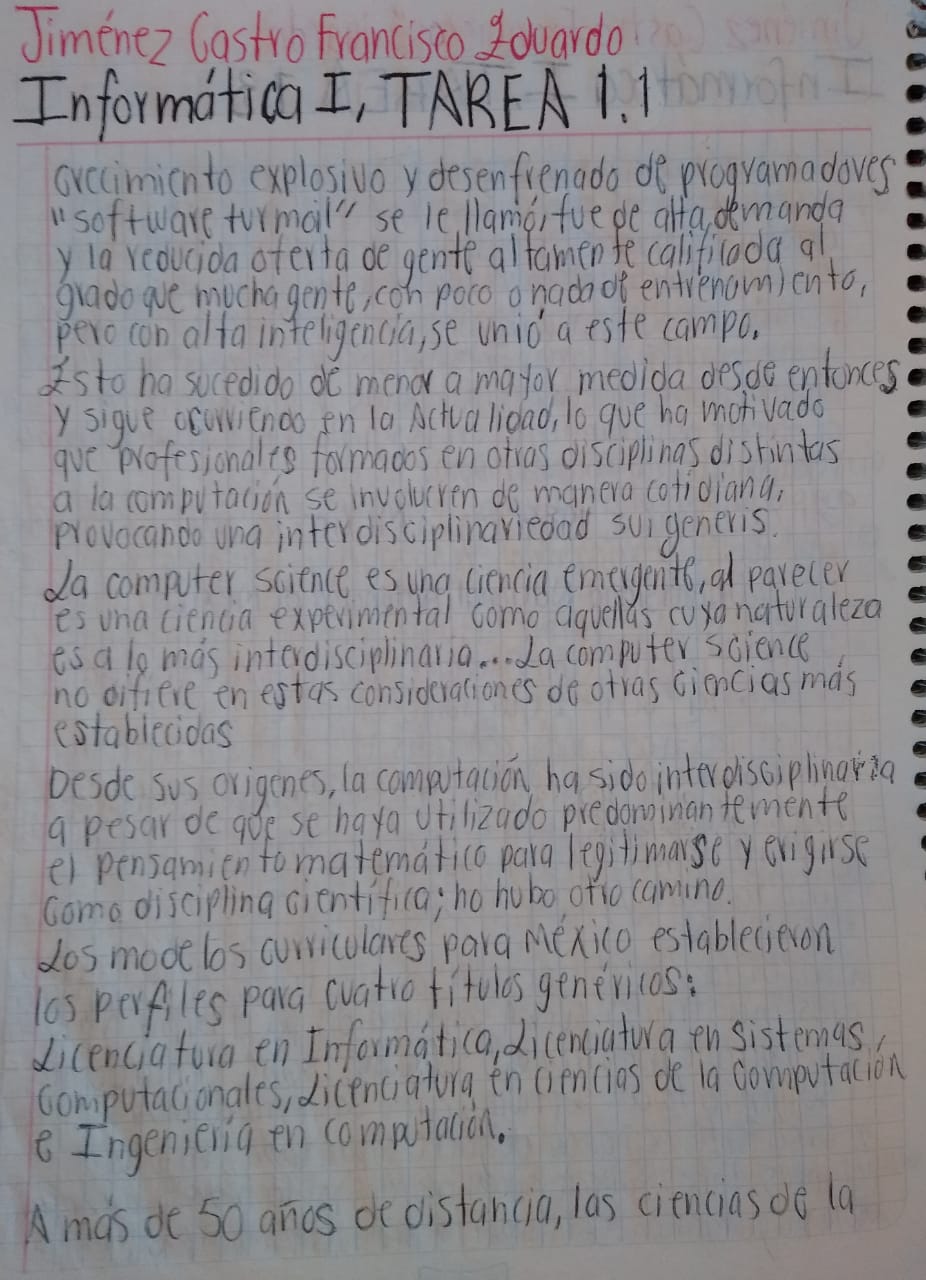 Jiménez Castro Francisco Eduardo
Informática I, TAREA 1.1
crecimiento explosivo y desenfrenado de programadores
"software turmoil" se le llamó, fue de alta, demanda
y la reducida oferta de gente altamente calificada al
grado que mucha gente, con poco o nada de entrenamiento,
pero con alta inteligencia, se unió a este campo.
Esto ha sucedido de menor a mayor medida desde entonces
y sigue ocurriendo en la Actualidad, lo que ha motivado
que profesionales formados en otras disciplinas distintas
a la computación se involucren de manera cotidiana,
provocando una interdisciplinariedad sui generis.
La computer science es una ciencia emergente, al parecer
es una ciencia experimental como aquellas cuya naturaleza
es a lo más interdisciplinaria... La computer science
no difiere en estas consideraciones de otras ciencias más
establecidas
Desde sus origenes, la computación ha sido interdisciplinaria
a pesar de que se haya utilizado predominantemente
el pensamiento matemático para legitimarse y erigirse
como disciplina científica; no hubo otro camino.
Los modelos curriculares para México establecieron
los perfiles para cuatro títulos genéricos:
Licenciatura en Informática, Licenciatura en Sistemas,
Computacionales, Licenciatura en Ciencias de la Computación
e Ingeniería en computación.
A más de 50 años de distancia, las ciencias de la